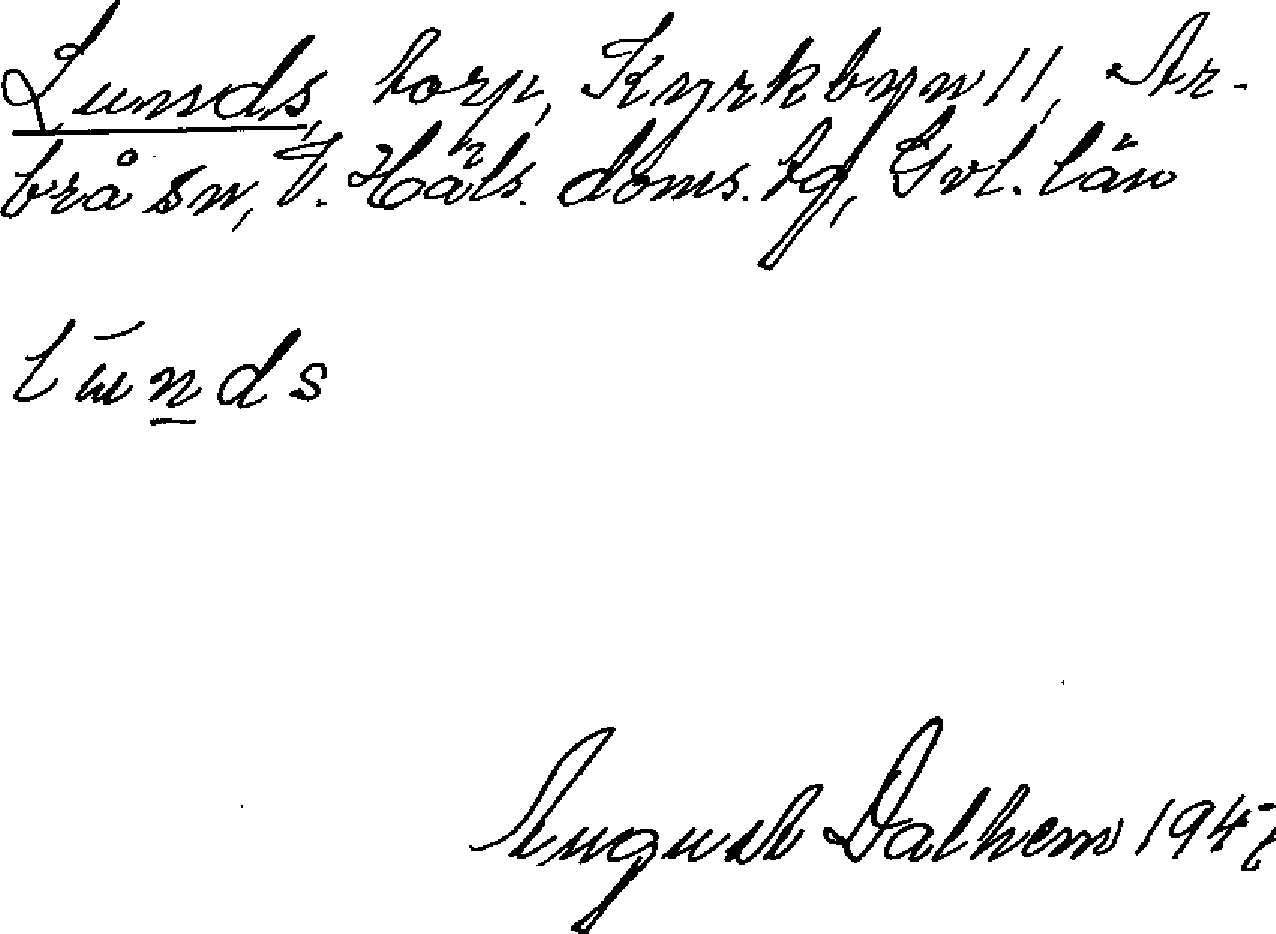 Lunds, torp, Kyrkbyn 11, Ar-
brå sn, V. Häls. doms. tg, Gvl. län
lūn̲ds
August Dalhem